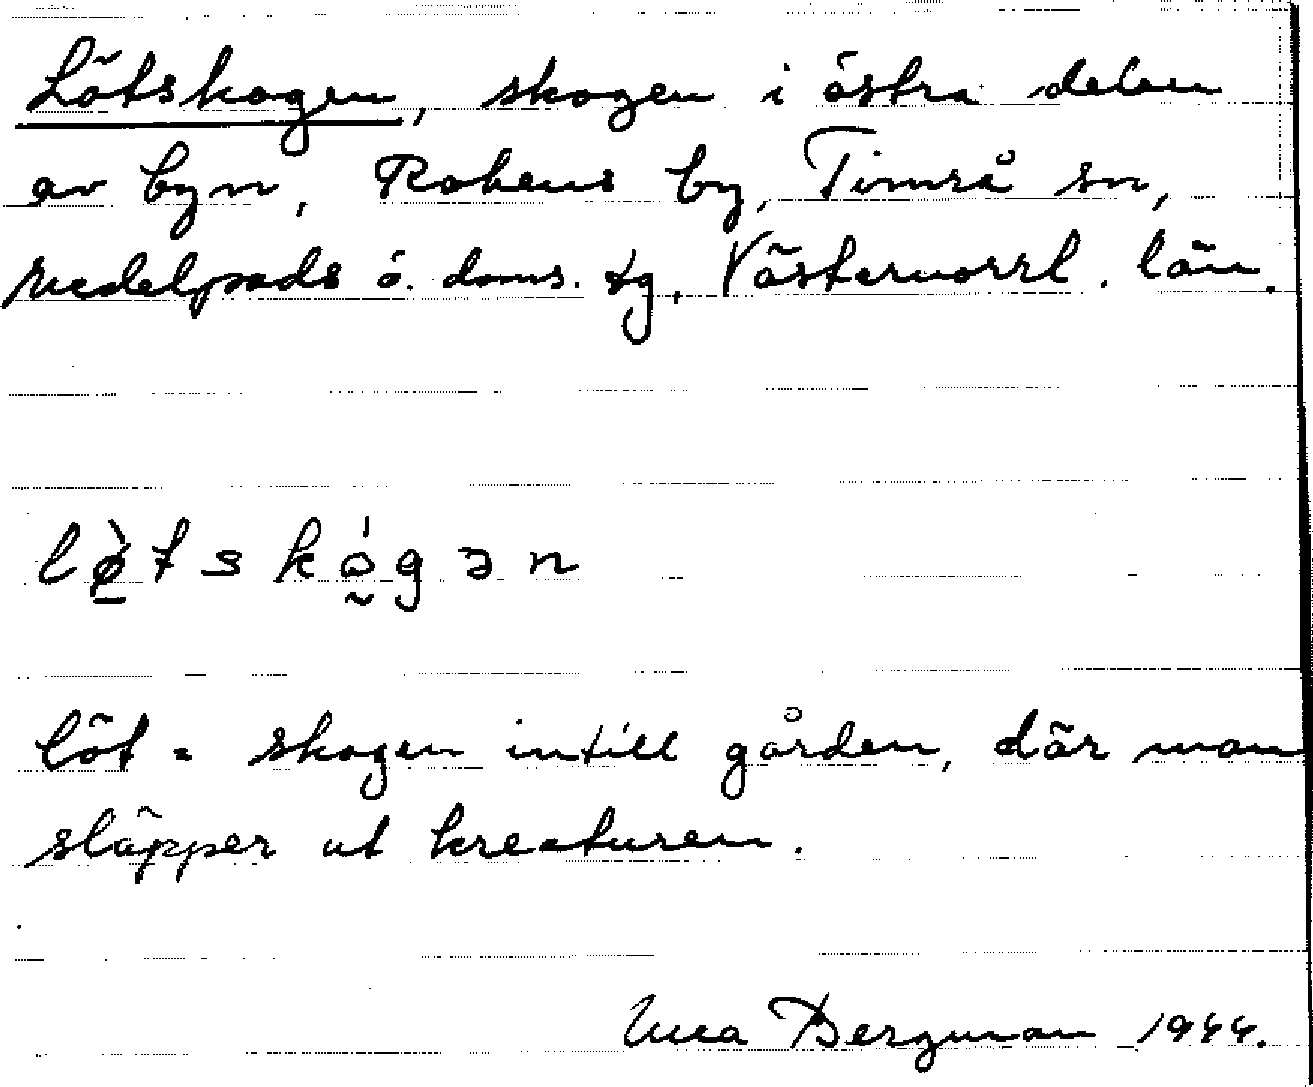 Lötskogen, skogen i östra delen
av byn, Rokens by, Timrå sn,
Medelpads ö. doms. tg, Västernorrl. län.
lø̠̀tskó̰gən
löt = skogen intill gården, där man
släpper ut kreaturen.
Bergman 1944.